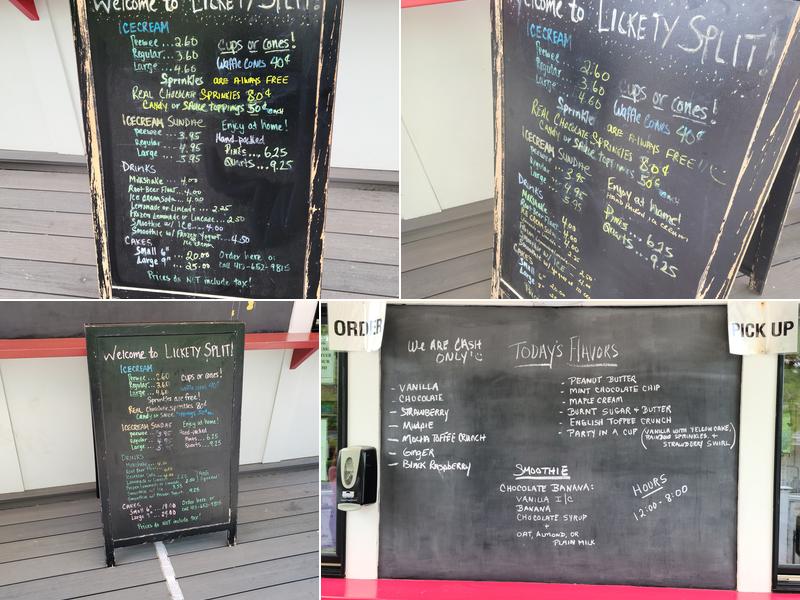 Welcome to LICKETY SPLIT!
ICECREAM
Peewee...2.60
Regular...3.60
Large...4.60
Cups or cones!
Waffle Cones 40¢
Sprinkles are Always FREE
REAL Chocolate SPRINKLES 80¢
CANDY or SAUCE toppings 50¢ each
ICECREAM SUNDAE
peewee...3.95
Regular...4.95
Large...5.95
Enjoy at home!
Hand-packed
Pints...6.25
Quarts...9.25
DRINKS
Milkshake...4.00
Root Beer Float...4.00
Ice cream Soda...4.00
Lemonade or Limeade...2.25
Frozen Lemonade or Limeade...2.50
Smoothie w/ Ice...4.00
Smoothie w/ Frozen Yogurt...4.50
CAKES
Small 6"...20.00
Large 9"...25.00
Order here or
call 413-652-9815
Prices do NOT include tax!
Welcome to LICKETY SPLIT!
ICECREAM
Peewee...2.60
Regular...3.60
Large...4.60
Cups or cones!
Waffle Cones 40¢
Sprinkles are Always FREE!!
REAL Chocolate SPRINKLES 80¢
CANDY or SAUCE toppings 50¢
ICECREAM SUNDAE
peewee...3.95
Regular...4.95
Large...5.95
Enjoy at home!
Hand Packed ice cream
Pints...6.25
Quarts...9.25
DRINKS
Welcome to LICKETY SPLIT!
ICECREAM
Peewee...2.60
Regular...3.60
Large...4.60
cups or cones!
waffle cones 40¢
Sprinkles are free!
REAL Chocolate Sprinkles 80¢
Candy or Sauce toppings
ICECREAM SUNDAE
peewee...3.95
Regular...4.95
Large...5.95
Enjoy at home!
Hand-packed
Pints...6.25
Quarts...9.25
DRINKS
CAKES
Small 6"...19.00
Large 9"...24.00
Order here or
Prices do NOT include tax!
ORDER
PICK UP
WE ARE CASH
ONLY!
TODAY'S FLAVORS
- VANILLA
- CHOCOLATE
- STRAWBERRY
- MUDPIE
- MOCHA TOFFEE CRUNCH
- GINGER
- BLACK RASPBERRY
- PEANUT BUTTER
- MINT CHOCOLATE CHIP
- MAPLE CREAM
- BURNT SUGAR & BUTTER
- ENGLISH TOFFEE CRUNCH
- PARTY IN A CUP (VANILLA WITH YELLOW CAKE,
RAINBOW SPRINKLES, &
STRAWBERRY SWIRL)
SMOOTHIE
CHOCOLATE BANANA:
VANILLA I/C
BANANA
CHOCOLATE SYRUP
+
OAT, ALMOND, OR
PLAIN MILK
HOURS
12:00-8:00